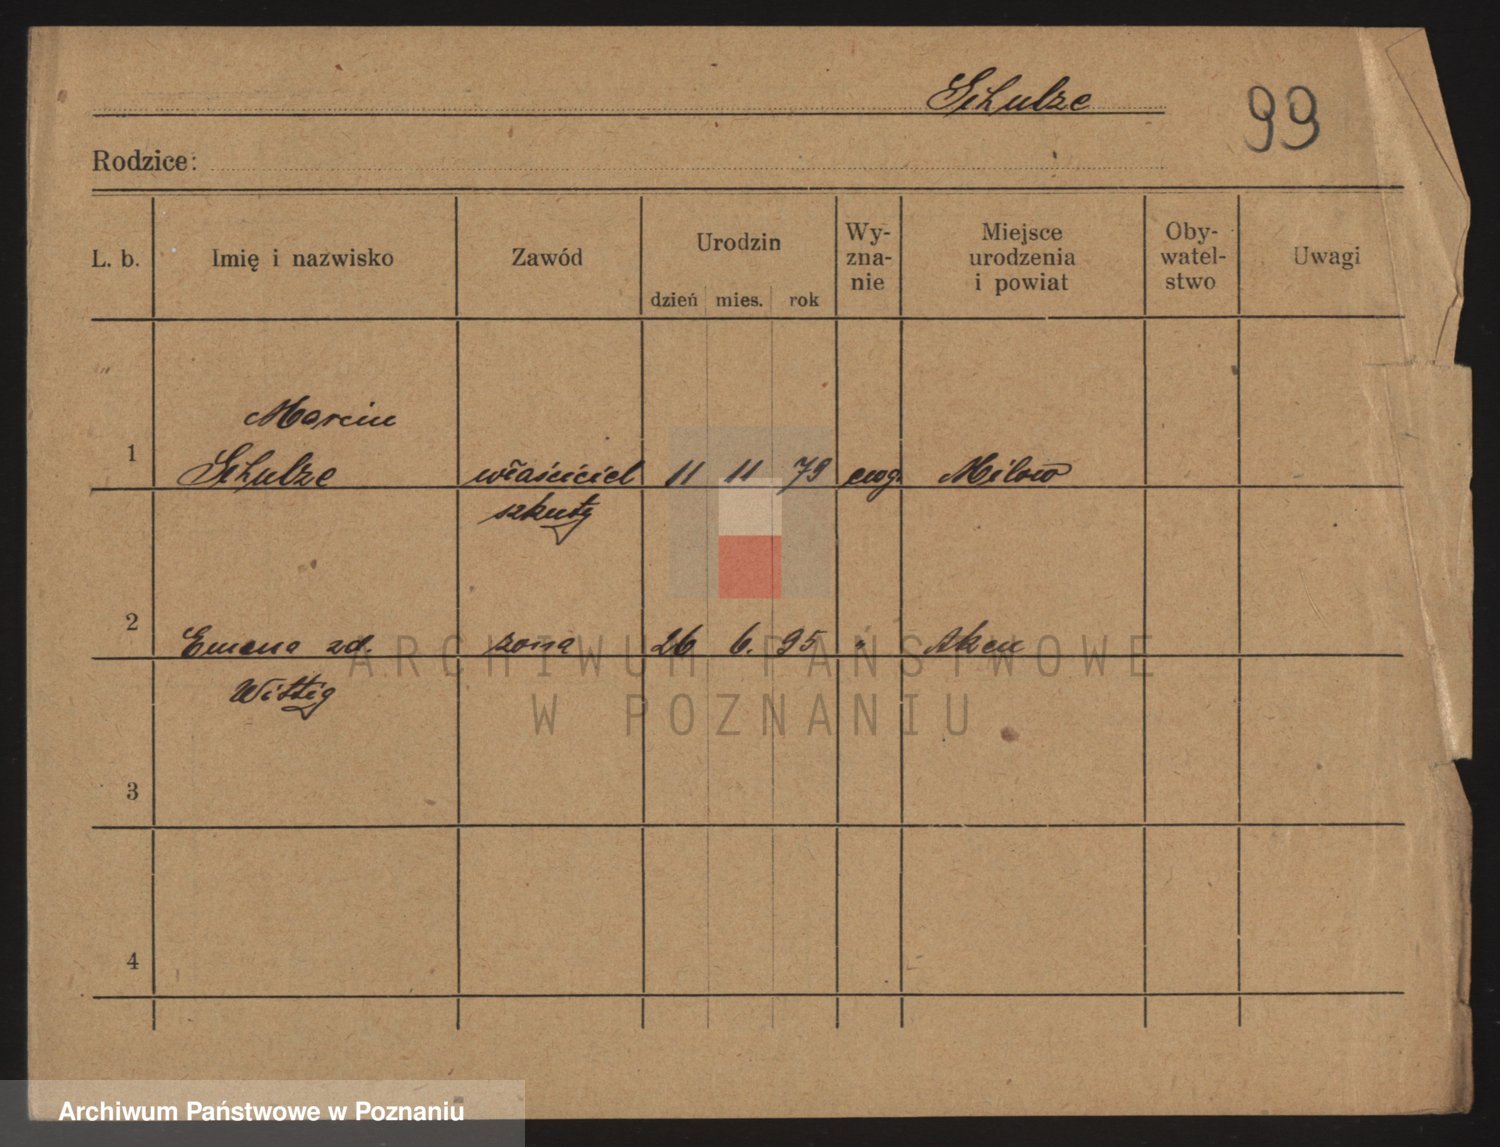 Schulze
99
Rodzice:
L. b. Imię i nazwisko Zawód Urodzin dzień mies. rok Wy-zna-nie Miejsce urodzenia i powiat Oby-watel-stwo Uwagi
Marcin
1 Schulze właściciel 11 11 79 ewg. Milow
szkuty
2 Emma zd. żona 26 6. 95 " Aken
Wittig
3
4
ARCHIWUM PAŃSTWOWE
W POZNANIU
Archiwum Państwowe w Poznaniu